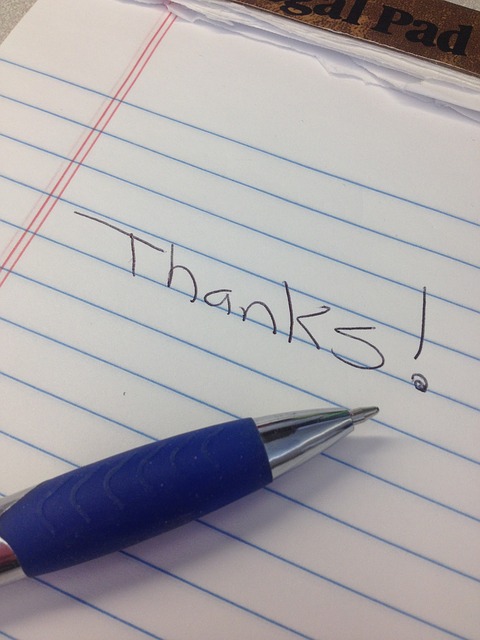 Legal Pad
Thanks!